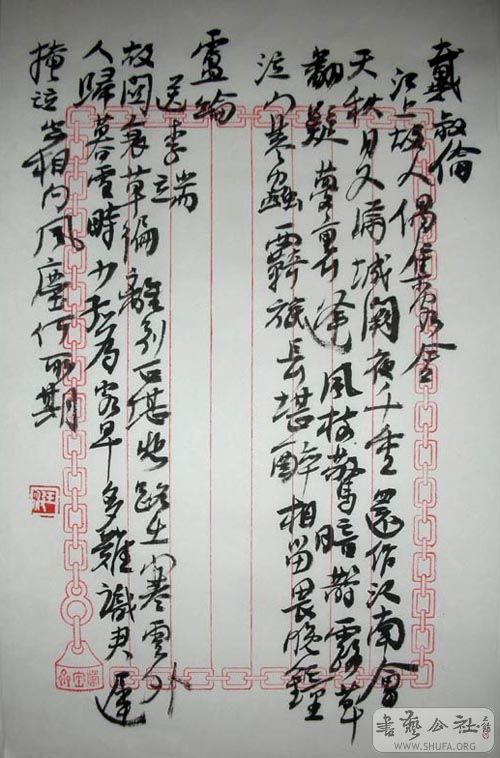 戴叔倫
江上故人偶集客舍
天秋月又滿城闕夜千重還作江南會
翻疑夢裏逢風枝驚暗鵲露草
泣寒蟲羈旅長堪醉相留畏曉鐘
盧綸
送李端
故關衰草遍離別自堪悲路出寒雲外
人歸暮雪時少孤為客早多難識君遲
掩泣空相向風塵何所期
書藝公社
WWW.SHUFA.ORG